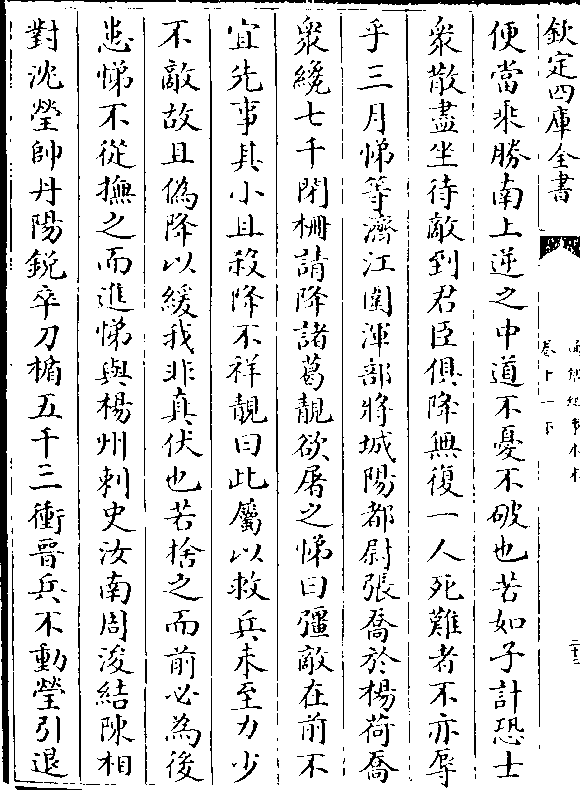 欽定四庫全書
卷十一下
便當乗勝南上逆之中道不憂不破也若如子計恐士
衆散盡坐待敵到君臣俱降無復一人死難者不亦辱
乎三月悌等濟江圍渾部將城陽都尉張喬於楊荷喬
衆纔七千閉柵請降諸葛靚欲屠之悌曰彊敵在前不
宜先事其小且殺降不祥靚曰此屬以救兵未至力少
不敵故且偽降以緩我非真伏也若捨之而前必為後
患悌不從撫之而進悌與楊州刺史汝南周浚結陳相
對沈瑩帥丹陽銳卒刀楯五千三衝晉兵不動瑩引退